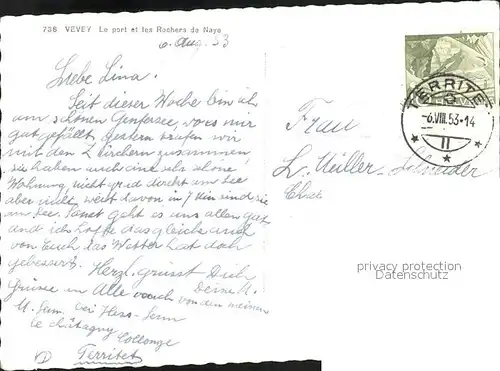 738 VEVEY Le port et les Rochers de Naye
6. Aug. 53
Liebe Lina.
Seit dieser Woche bin ich
am schönen Genfersee, wo es mir
gut gefällt. Gestern trafen wir
mit den 2 Kirchern zusammen,
sie haben auch eine sehr schöne
Wohnung, nicht grad direkt am See
aber nicht weit davon in 7 Min sind sie
am See. Sonst geht es uns allen gut
und ich hoffe das gleiche auch
von Euch, das Wetter hat doch
gebessert. Herzl. grüsst Dich
Deine M.
Grüsse an Alle auch von den meinen
M. Senn. bei Hess-Senn
le châtagny
Collonge
Territet
Frau
L. Müller-Schneider
TERRITET
-6.VIII.53-14
II
privacy protection
Datenschutz